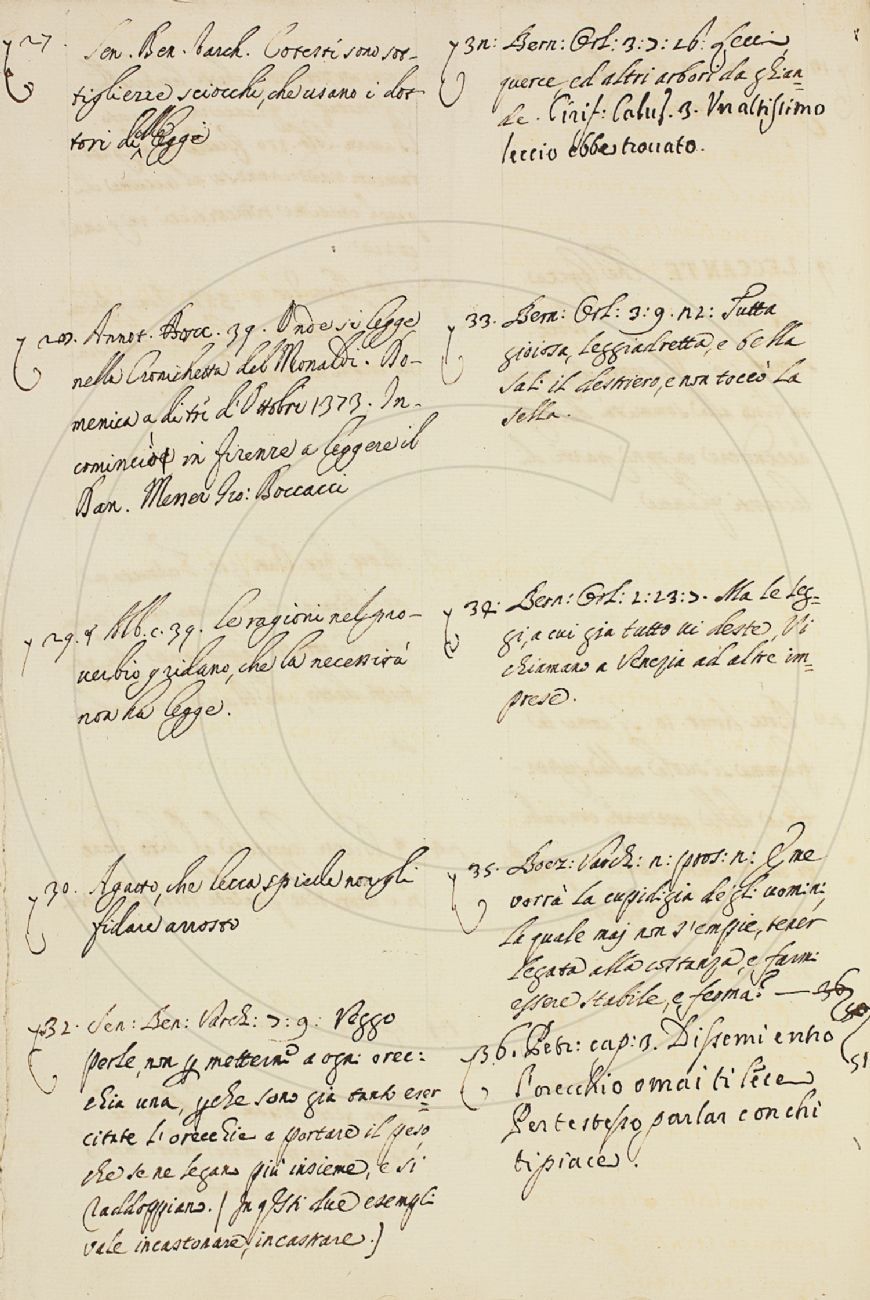 27. Sen. Ben. Varch. Cotesti sono sot-
tiglieze sciocchi, che usano i dot-
tori delle leggi
28. Annot. Bocc. 39. Onde si legge
nella Cronichetta del Monaldi. Do-
menica a di tré d'Ottobre 1373. In-
cominciò in firenze a leggere il
Dan. Messer Gio: Boccacci
29. Alb. c. 39. le ragioni nel pro-
verbio gridano, che la necessità
non ha legge.
30. A gatto, che lecca spiedo non gli
fidare arrosto
32. Sen: Ben: Varch: 7: 9: Veggo
perle, non p metterne a ogni orec:
chia una, pche sono già tanto eser=
citate l'orecchie a portare il peso,
che se ne legano più insieme, e si
raddoppiano. (In q̃sti due esempli
vale incastonare, incastrare.)
3n: Bern: Orl: 3: 7: 26: lecci,
querce, ed altri arbori da ghian=
de. Cirif: Calu. 3. Un altissimo
leccio ebbe trouato.
33. Bern: Orl: 3: 9. n2: Tutta
gioiosa, leggiadretta, e bella
Salì il destriero, e non toccò la
sella.
34: Bern: Orl: 2: 23: 7. Ma le leg=
gi, a cui già tutto vi deste, Vi
chiamano a Venezia ad altre im=
prese.
35. Boez: Varch: n: pros: n: E me
vorrà la cupidigia degli uomini,
la quale mai non s'empie, tener
legata alla costanza, e farmi
essere stabile, e ferma? — 36
51
36. Petr: cap: 3. Dissemi entro
l'orecchio omai ti lece
Per te stesso parlar con chi
ti piace.